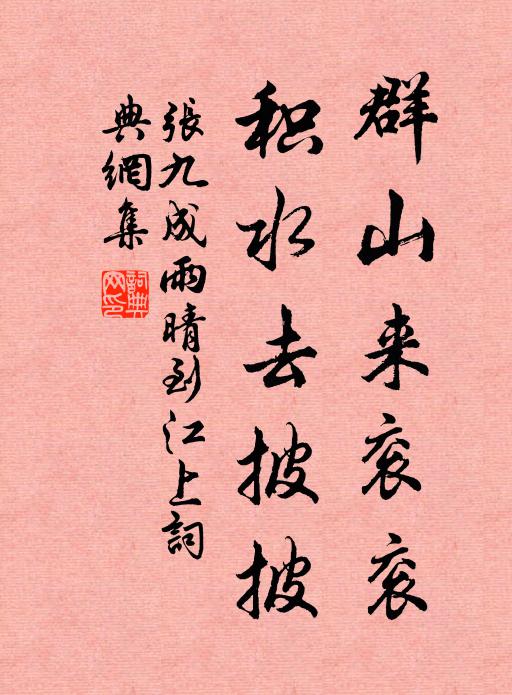 群山来衮衮
积水去披披
張九成雨晴到江上詞
典網集
詞典网印